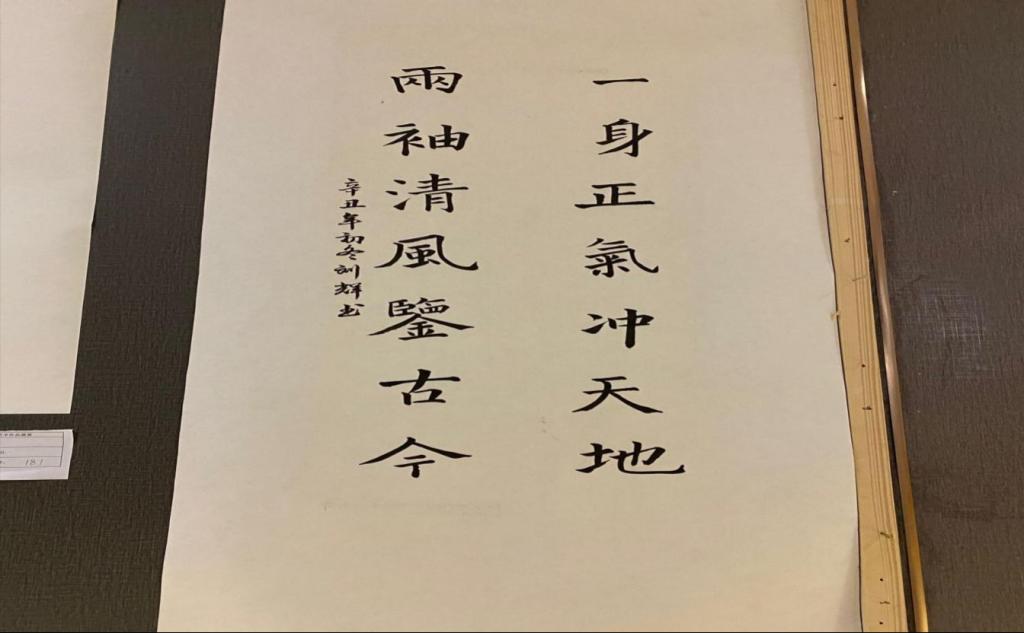 一身正氣冲天地
兩袖清風鑒古今
辛丑年初冬訓輝书
181